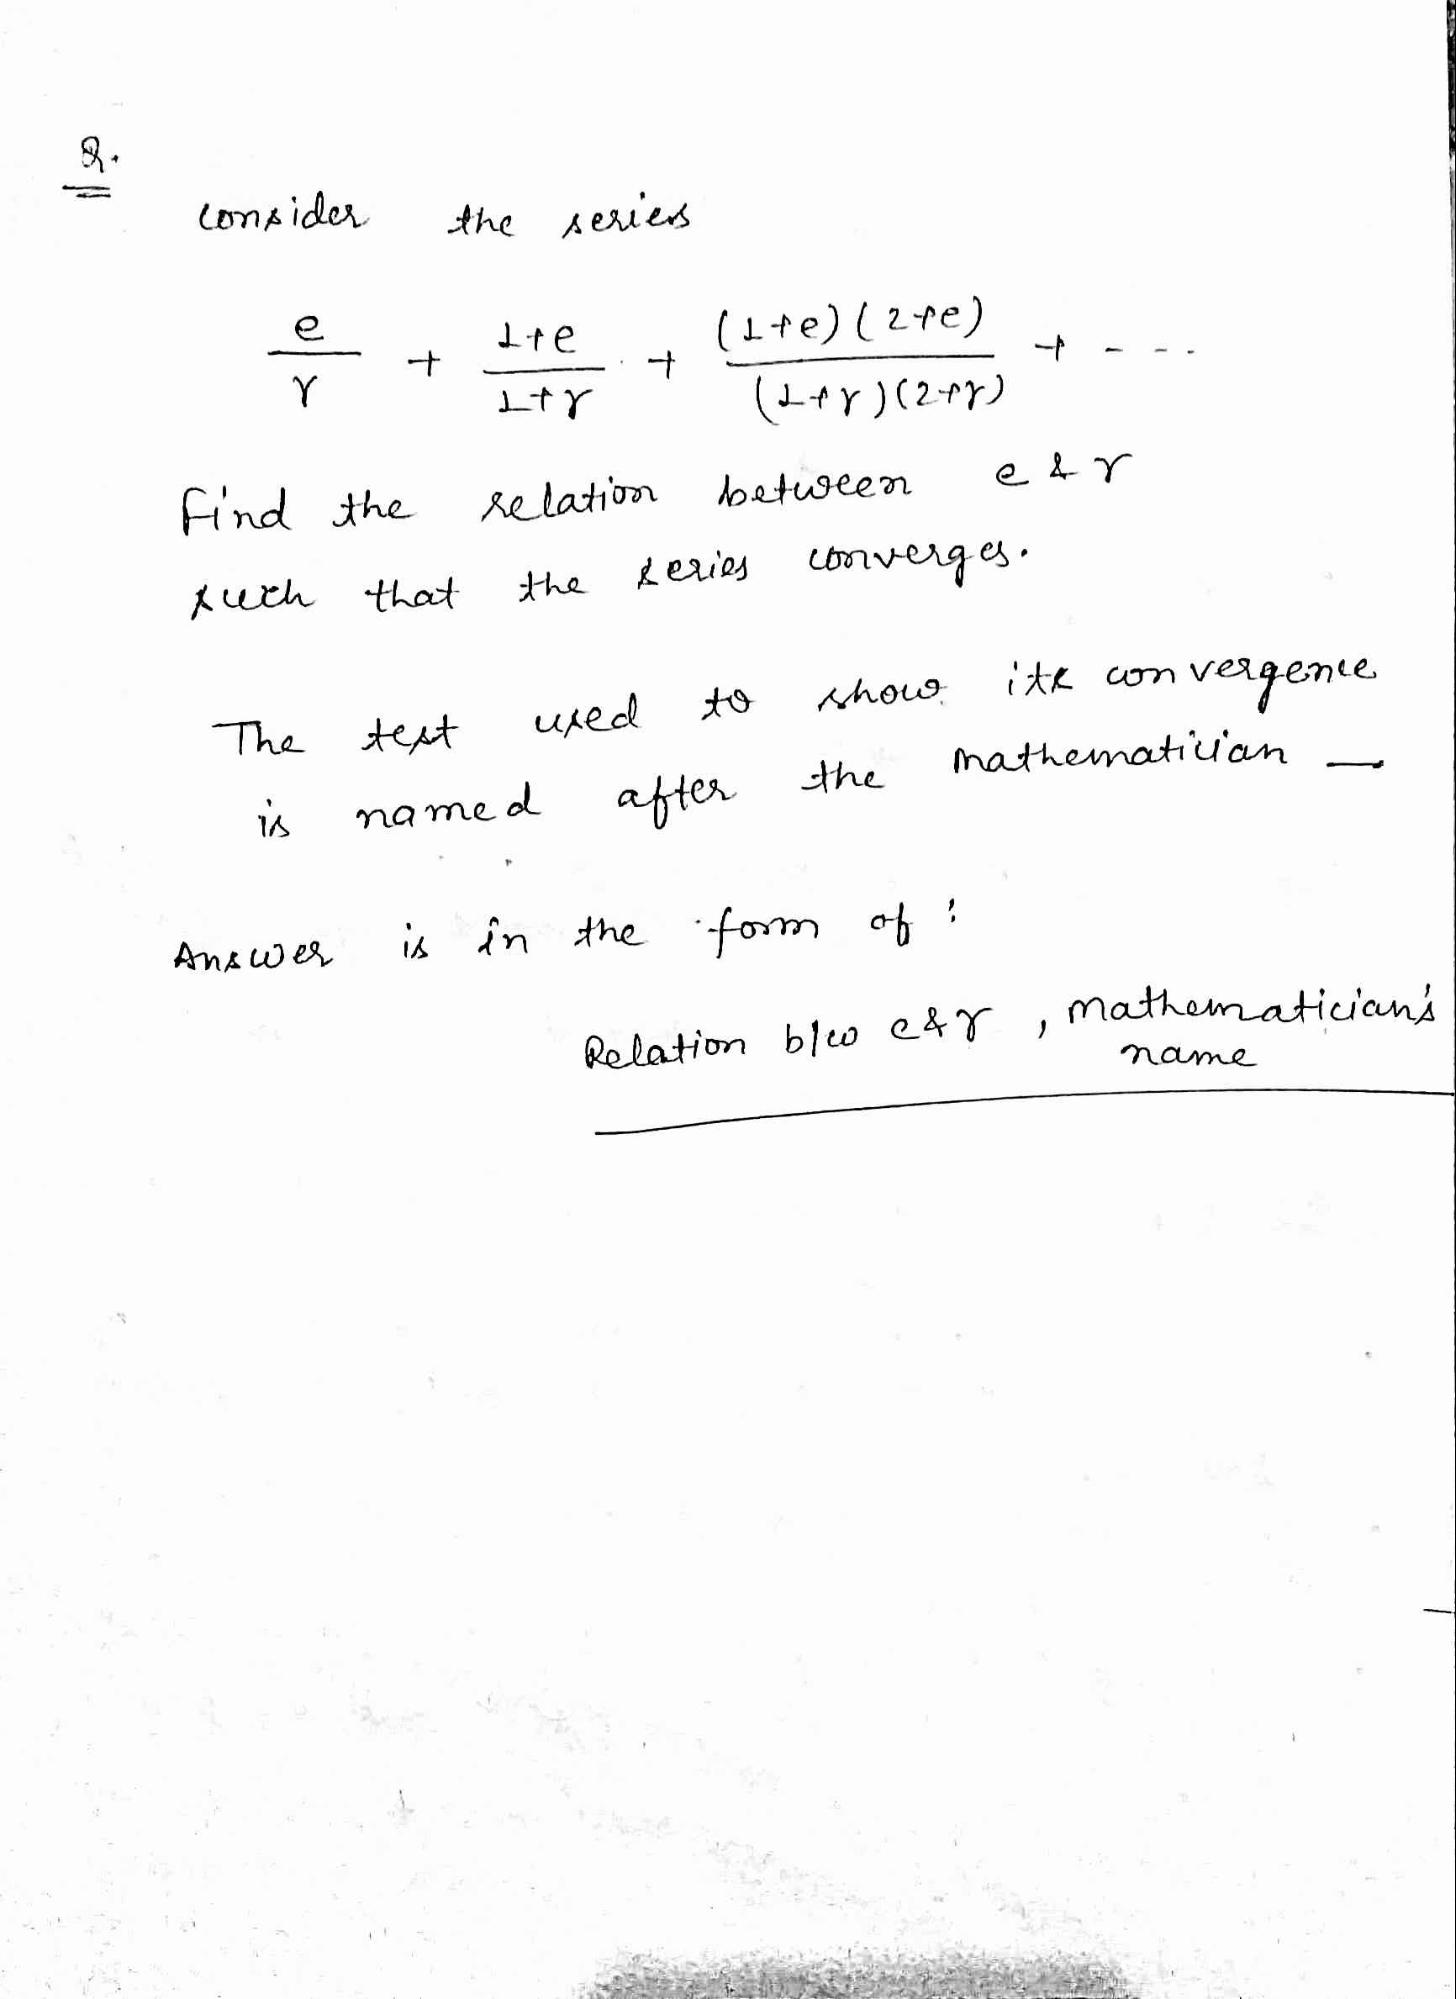 Q.
consider the series
e/r + 1+e/1+r + (1+e)(2+e)/(1+r)(2+r) + - - - -
Find the relation between e & r
such that the series converges.
The test used to show its convergence
is named after the mathematician —
Answer is in the form of :
Relation b/w e & r , mathematician's
name